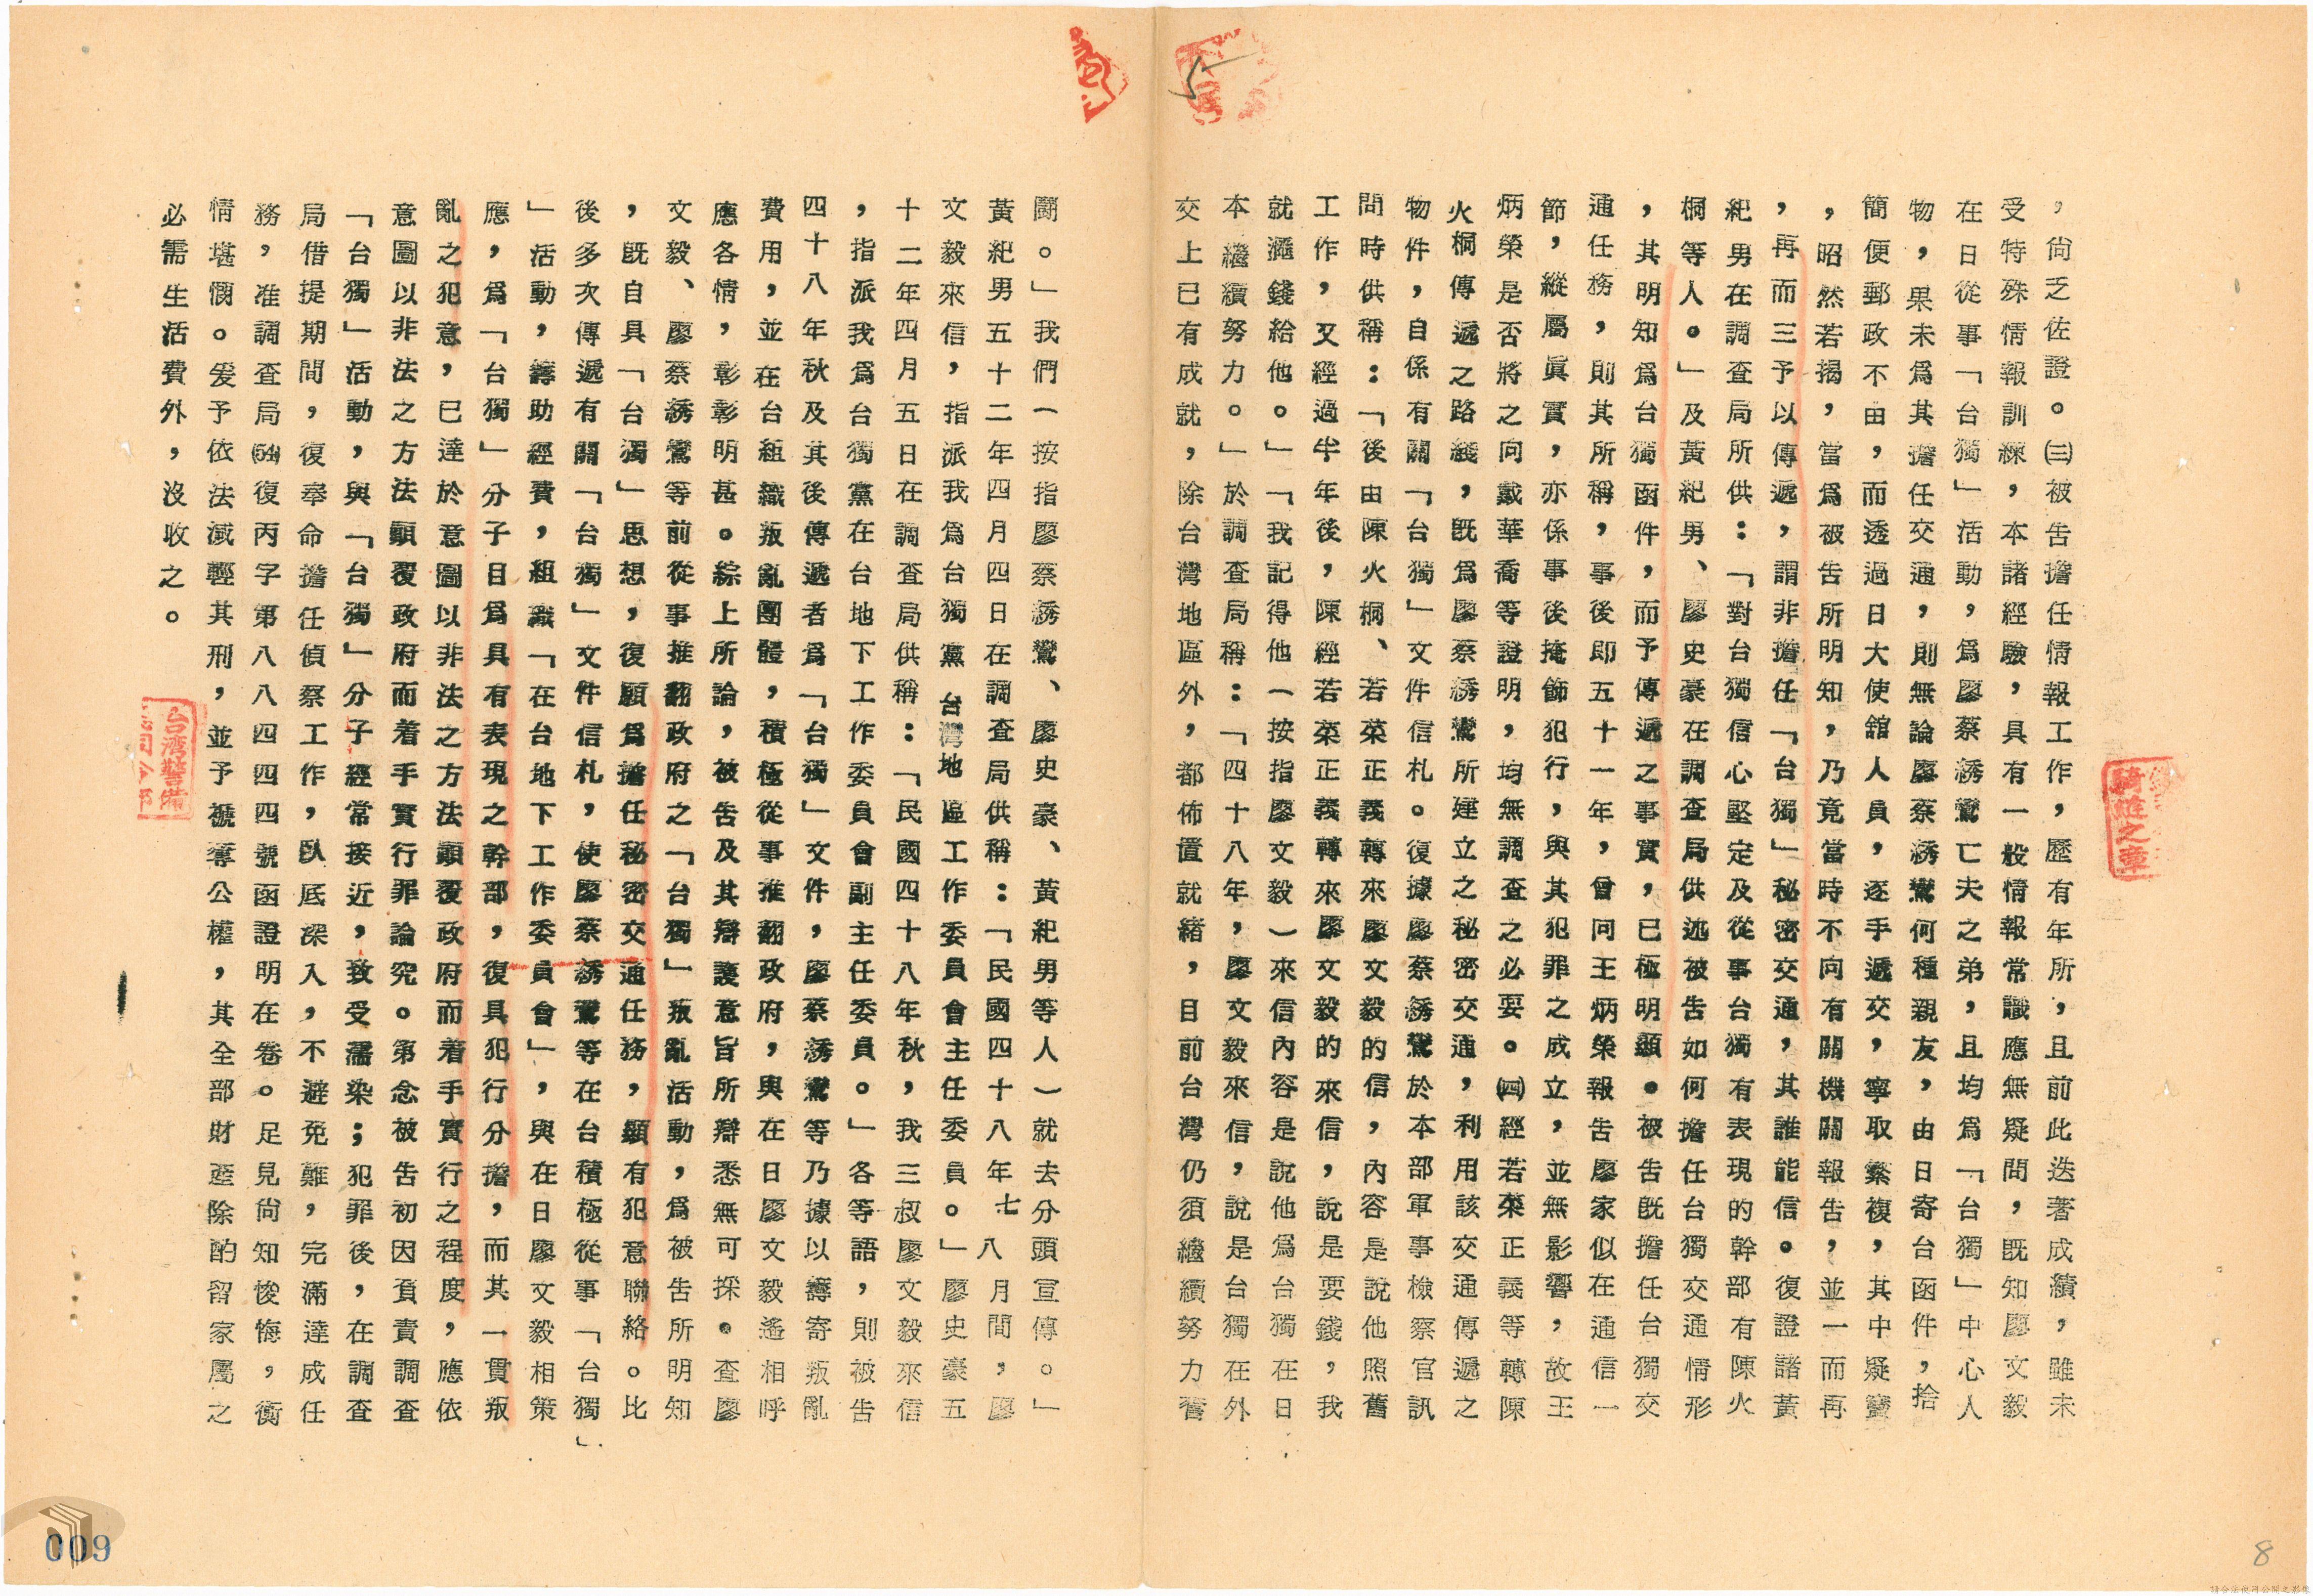 ，尚乏佐證。㈢被告擔任情報工作，歷有年所，且前此迭著成績，雖未
受特殊情報訓練，本諸經驗，具有一般情報常識應無疑問，既知廖文毅
在日從事「台獨」活動，為廖蔡綉鸞亡夫之弟，且均為「台獨」中心人
物，果未為其擔任交通，則無論廖蔡綉鸞何種親友，由日寄台函件，捨
簡便郵政不由，而透過日大使舘人員，逐手遞交，寧取繁複，其中疑竇
，昭然若揭，當為被告所明知，乃竟當時不向有關機關報告，並一而再
，再而三予以傳遞，謂非擔任「台獨」秘密交通，其誰能信。復證諸黃
紀男在調查局所供：「對台獨信心堅定及從事台獨有表現的幹部有陳火
桐等人。」及黃紀男、廖史豪在調查局供述被告如何擔任台獨交通情形
，其明知為台獨函件，而予傳遞之事實，已極明顯。被告既擔任台獨交
通任務，則其所稱，事後即五十一年，曾向王炳榮報告廖家似在通信一
節，縱屬眞實，亦係事後掩飾犯行，與其犯罪之成立，並無影響，故王
炳榮是否將之向戴華喬等證明，均無調查之必要。㈣經若菜正義等轉陳
火桐傳遞之路綫，既為廖蔡綉鸞所建立之秘密交通，利用該交通傳遞之
物件，自係有關「台獨」文件信札。復據廖蔡綉鸞於本部軍事檢察官訊
問時供稱：「後由陳火桐、若菜正義轉來廖文毅的信，內容是說他照舊
工作，又經過半年後，陳經若菜正義轉來廖文毅的來信，說是要錢，我
就滙錢給他。」「我記得他一按指廖文毅）來信內容是說他為台獨在日
本繼續努力。」於調查局稱：「四十八年，廖文毅來信，說是台獨在外
交上已有成就，除台灣地區外，都佈置就緒，目前台灣仍須繼續努力奮
鬪。」我們一按指廖蔡綉鸞、廖史豪、黃紀男等人）就去分頭宣傳。」
黃紀男五十二年四月四日在調查局供稱：「民國四十八年七八月間，廖
文毅來信，指派我為台獨黨台灣地區工作委員會主任委員。」廖史豪五
十二年四月五日在調查局供稱：「民國四十八年秋，我三叔廖文毅來信
，指派我為台獨黨在台地下工作委員會副主任委員。」各等語，則被告
四十八年秋及其後傳遞者為「台獨」文件，廖蔡綉鸞等乃據以籌寄叛亂
費用，並在台組織叛亂團體，積極從事推翻政府，與在日廖文毅遙相呼
應各情，彰彰明甚。綜上所論，被告及其辯護意旨所辯悉無可採。查廖
文毅、廖蔡綉鸞等前從事推翻政府之「台獨」叛亂活動，為被告所明知
，既自具「台獨」思想，復願為擔任秘密交通任務，顯有犯意聯絡。比
後多次傳遞有關「台獨」文件信札，使廖蔡綉鸞等在台積極從事「台獨」
」活動，籌助經費，組織「在台地下工作委員會」，與在日廖文毅相策
應，為「台獨」分子目為具有表現之幹部，復具犯行分擔，而其一貫叛
亂之犯意，已達於意圖以非法之方法顛覆政府而着手實行之程度，應依
意圖以非法之方法顛覆政府而着手實行罪論究。第念被告初因負責調查
「台獨」活動，與「台獨」分子經常接近，致受濡染；犯罪後，在調查
局借提期間，復奉命擔任偵察工作，臥底深入，不避危難，完滿達成任
務，准調查局(54)復丙字第八八四四四號函證明在卷。足見尚知悛悔，衡
情堪憫。爰予依法減輕其刑，並予褫奪公權，其全部財產除酌留家屬之
必需生活費外，沒收之。
騎縫之章
台灣警備
009
8
5